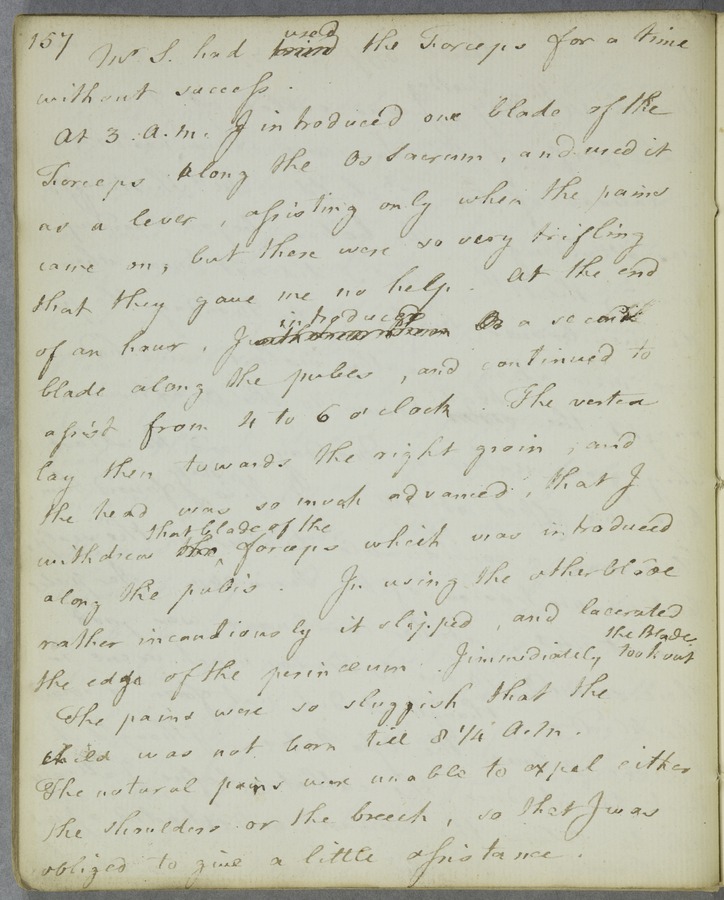 157
used
Mr S. had tried the Forceps for a time
without success.
At 3. A.m. I introduced one blade of the
Forceps along the Os Sacrum, and used it
as a lever, assisting only when the pains
came on; but these were so very trifling
that they gave me no help. At the end
introduced
of an hour, I a second
blade along the pubes, and continued to
assist from 4 to 6 o'clock. The vertex
lay then towards the right groin, and
the head was so much advanced, that I
that blade of the
withdrew the forceps which was introduced
along the pubis. In using the other blade
rather incautiously it slipped, and lacerated
the Blade.
the edge of the perinœum. I immediately took out
The pains were so sluggish that the
child was not born till 8 1/4 A.m.
The natural pains were unable to expel either
the shoulders or the breech, so that I was
obliged to give a little assistance.